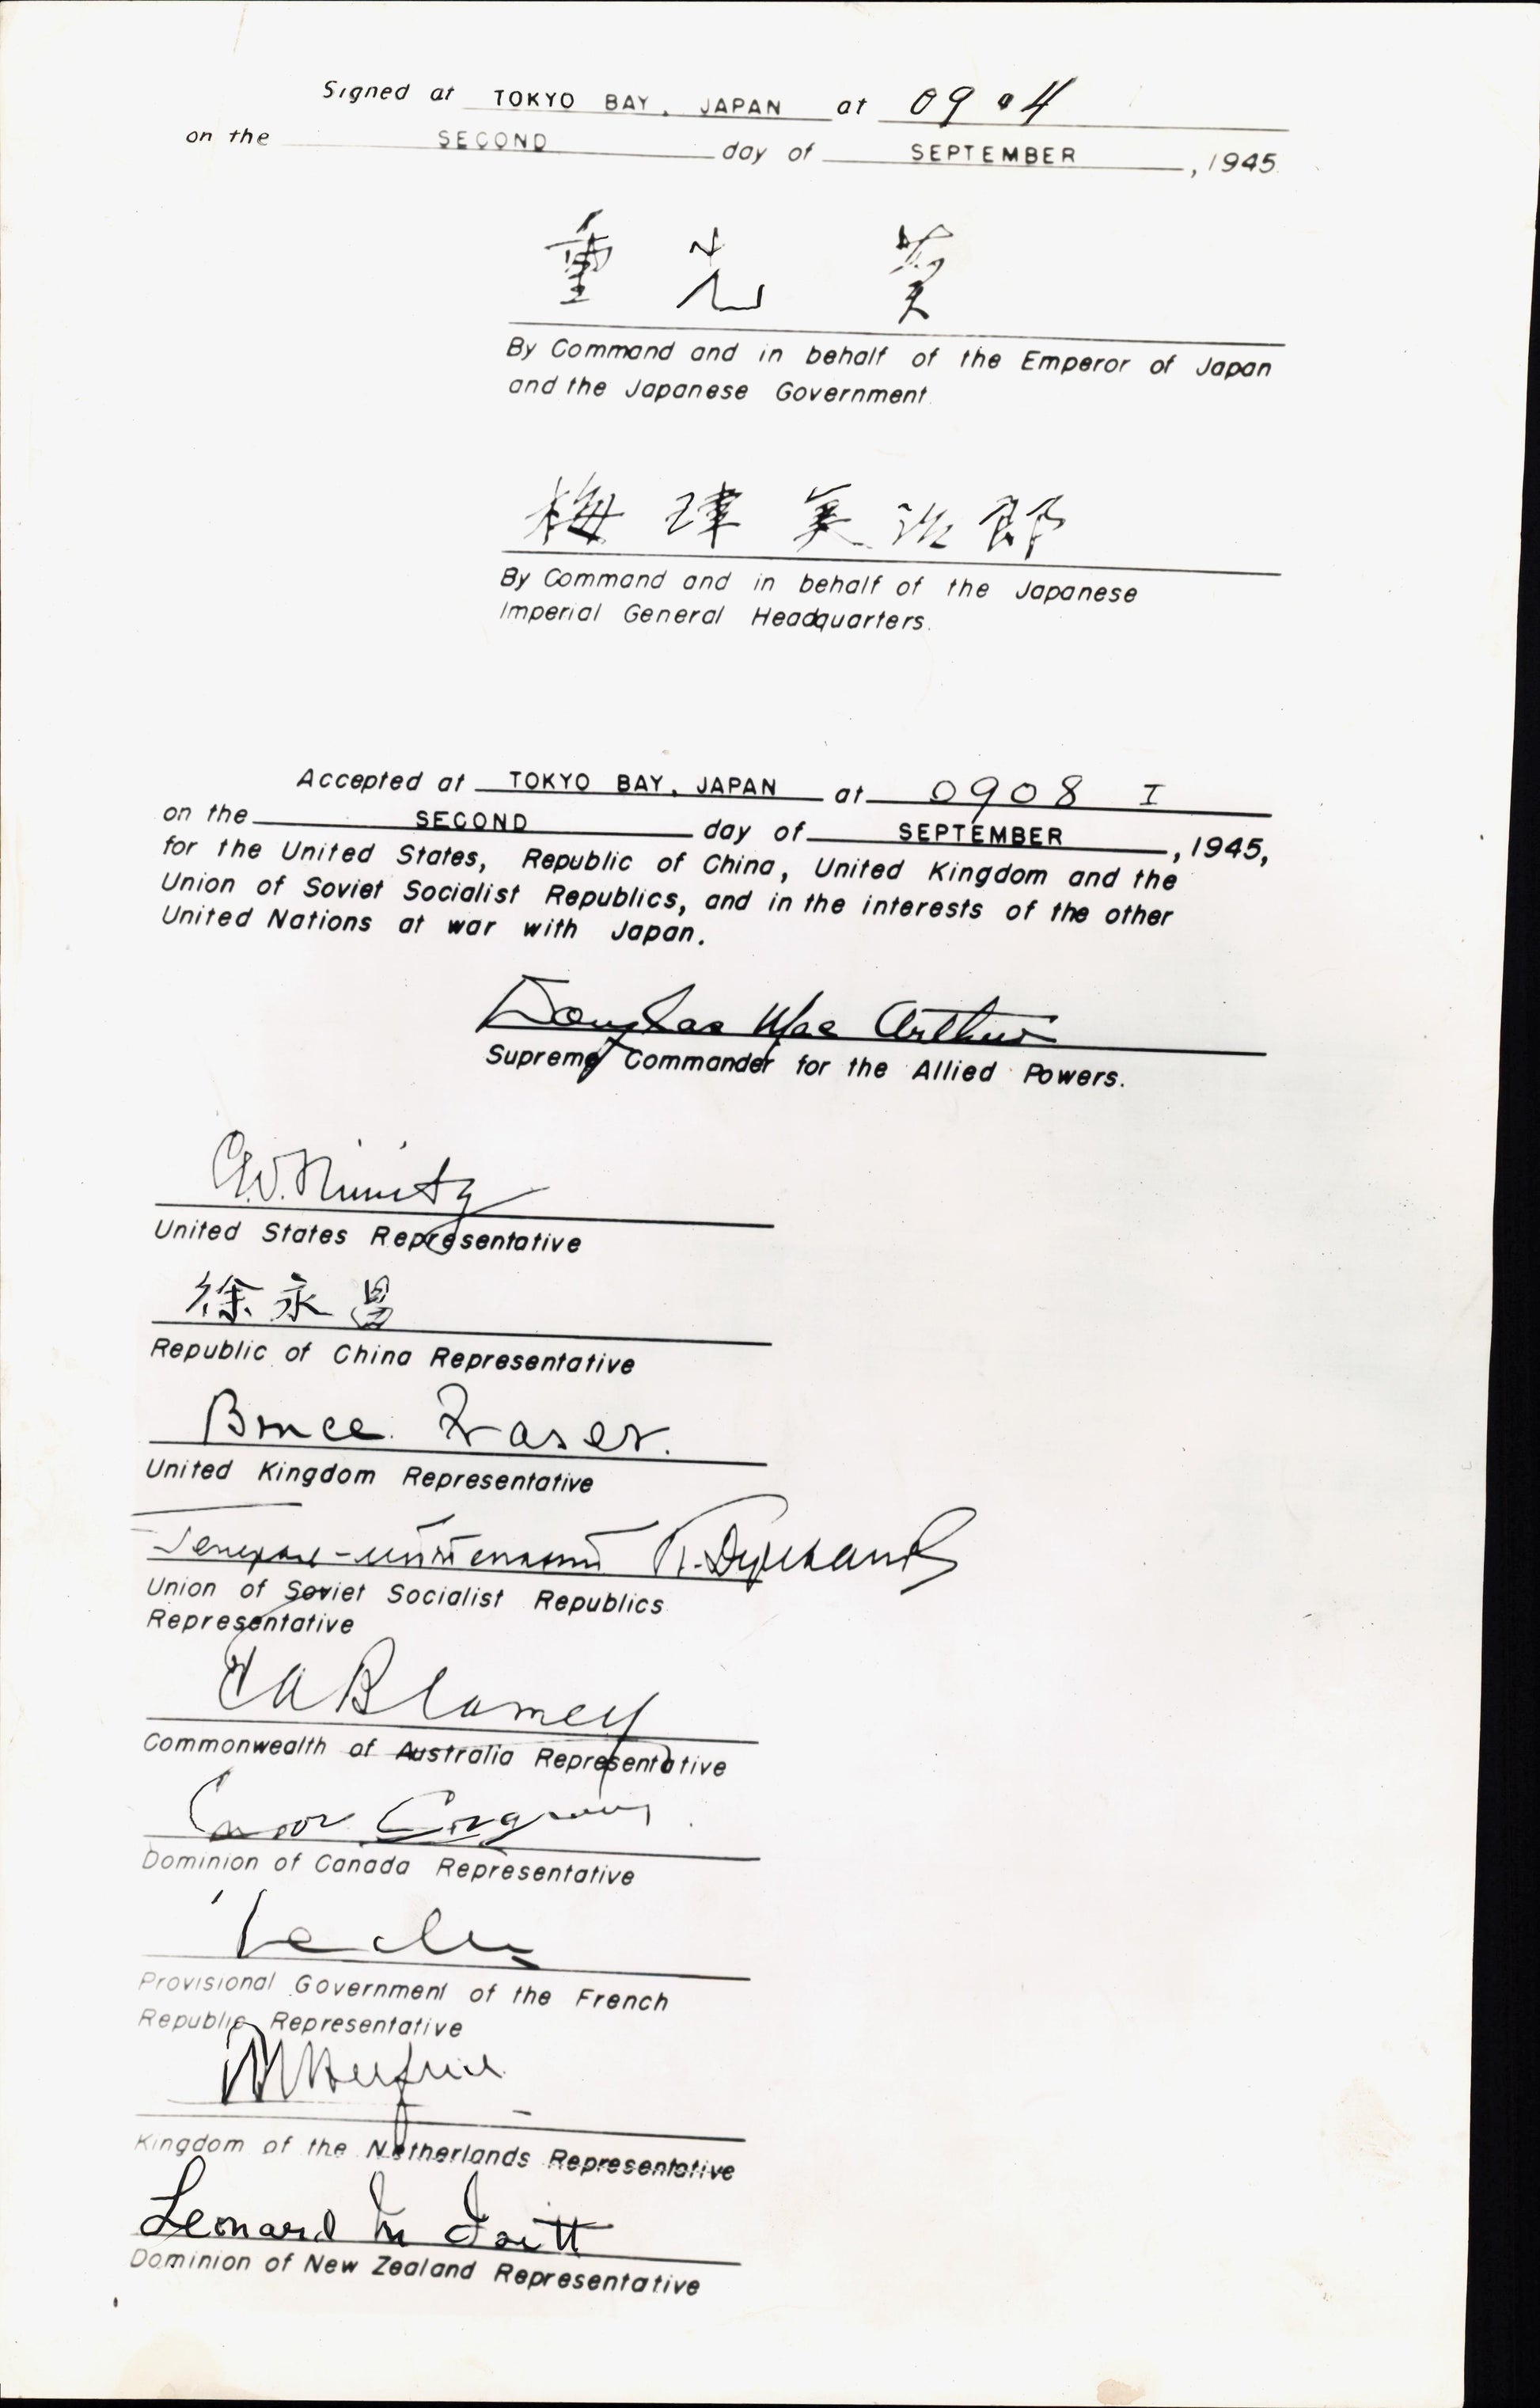 Signed at TOKYO BAY, JAPAN at 0904
on the SECOND day of SEPTEMBER, 1945.
重光 葵
By Command and in behalf of the Emperor of Japan
and the Japanese Government.
梅津美治郎
By Command and in behalf of the Japanese
Imperial General Headquarters.
Accepted at TOKYO BAY, JAPAN at 0908 I
on the SECOND day of SEPTEMBER, 1945,
for the United States, Republic of China, United Kingdom and the
Union of Soviet Socialist Republics, and in the interests of the other
United Nations at war with Japan.
Douglas MacArthur
Supreme Commander for the Allied Powers.
C.W. Nimitz
United States Representative
徐永昌
Republic of China Representative
Bruce Fraser.
United Kingdom Representative
Генерал-лейтенант К. Деревянко
Union of Soviet Socialist Republics
Representative
T A Blamey
Commonwealth of Australia Representative
Dominion of Canada Representative
Leclerc
Provisional Government of the French
Republic Representative
Kingdom of the Netherlands Representative
Leonard M Isitt
Dominion of New Zealand Representative